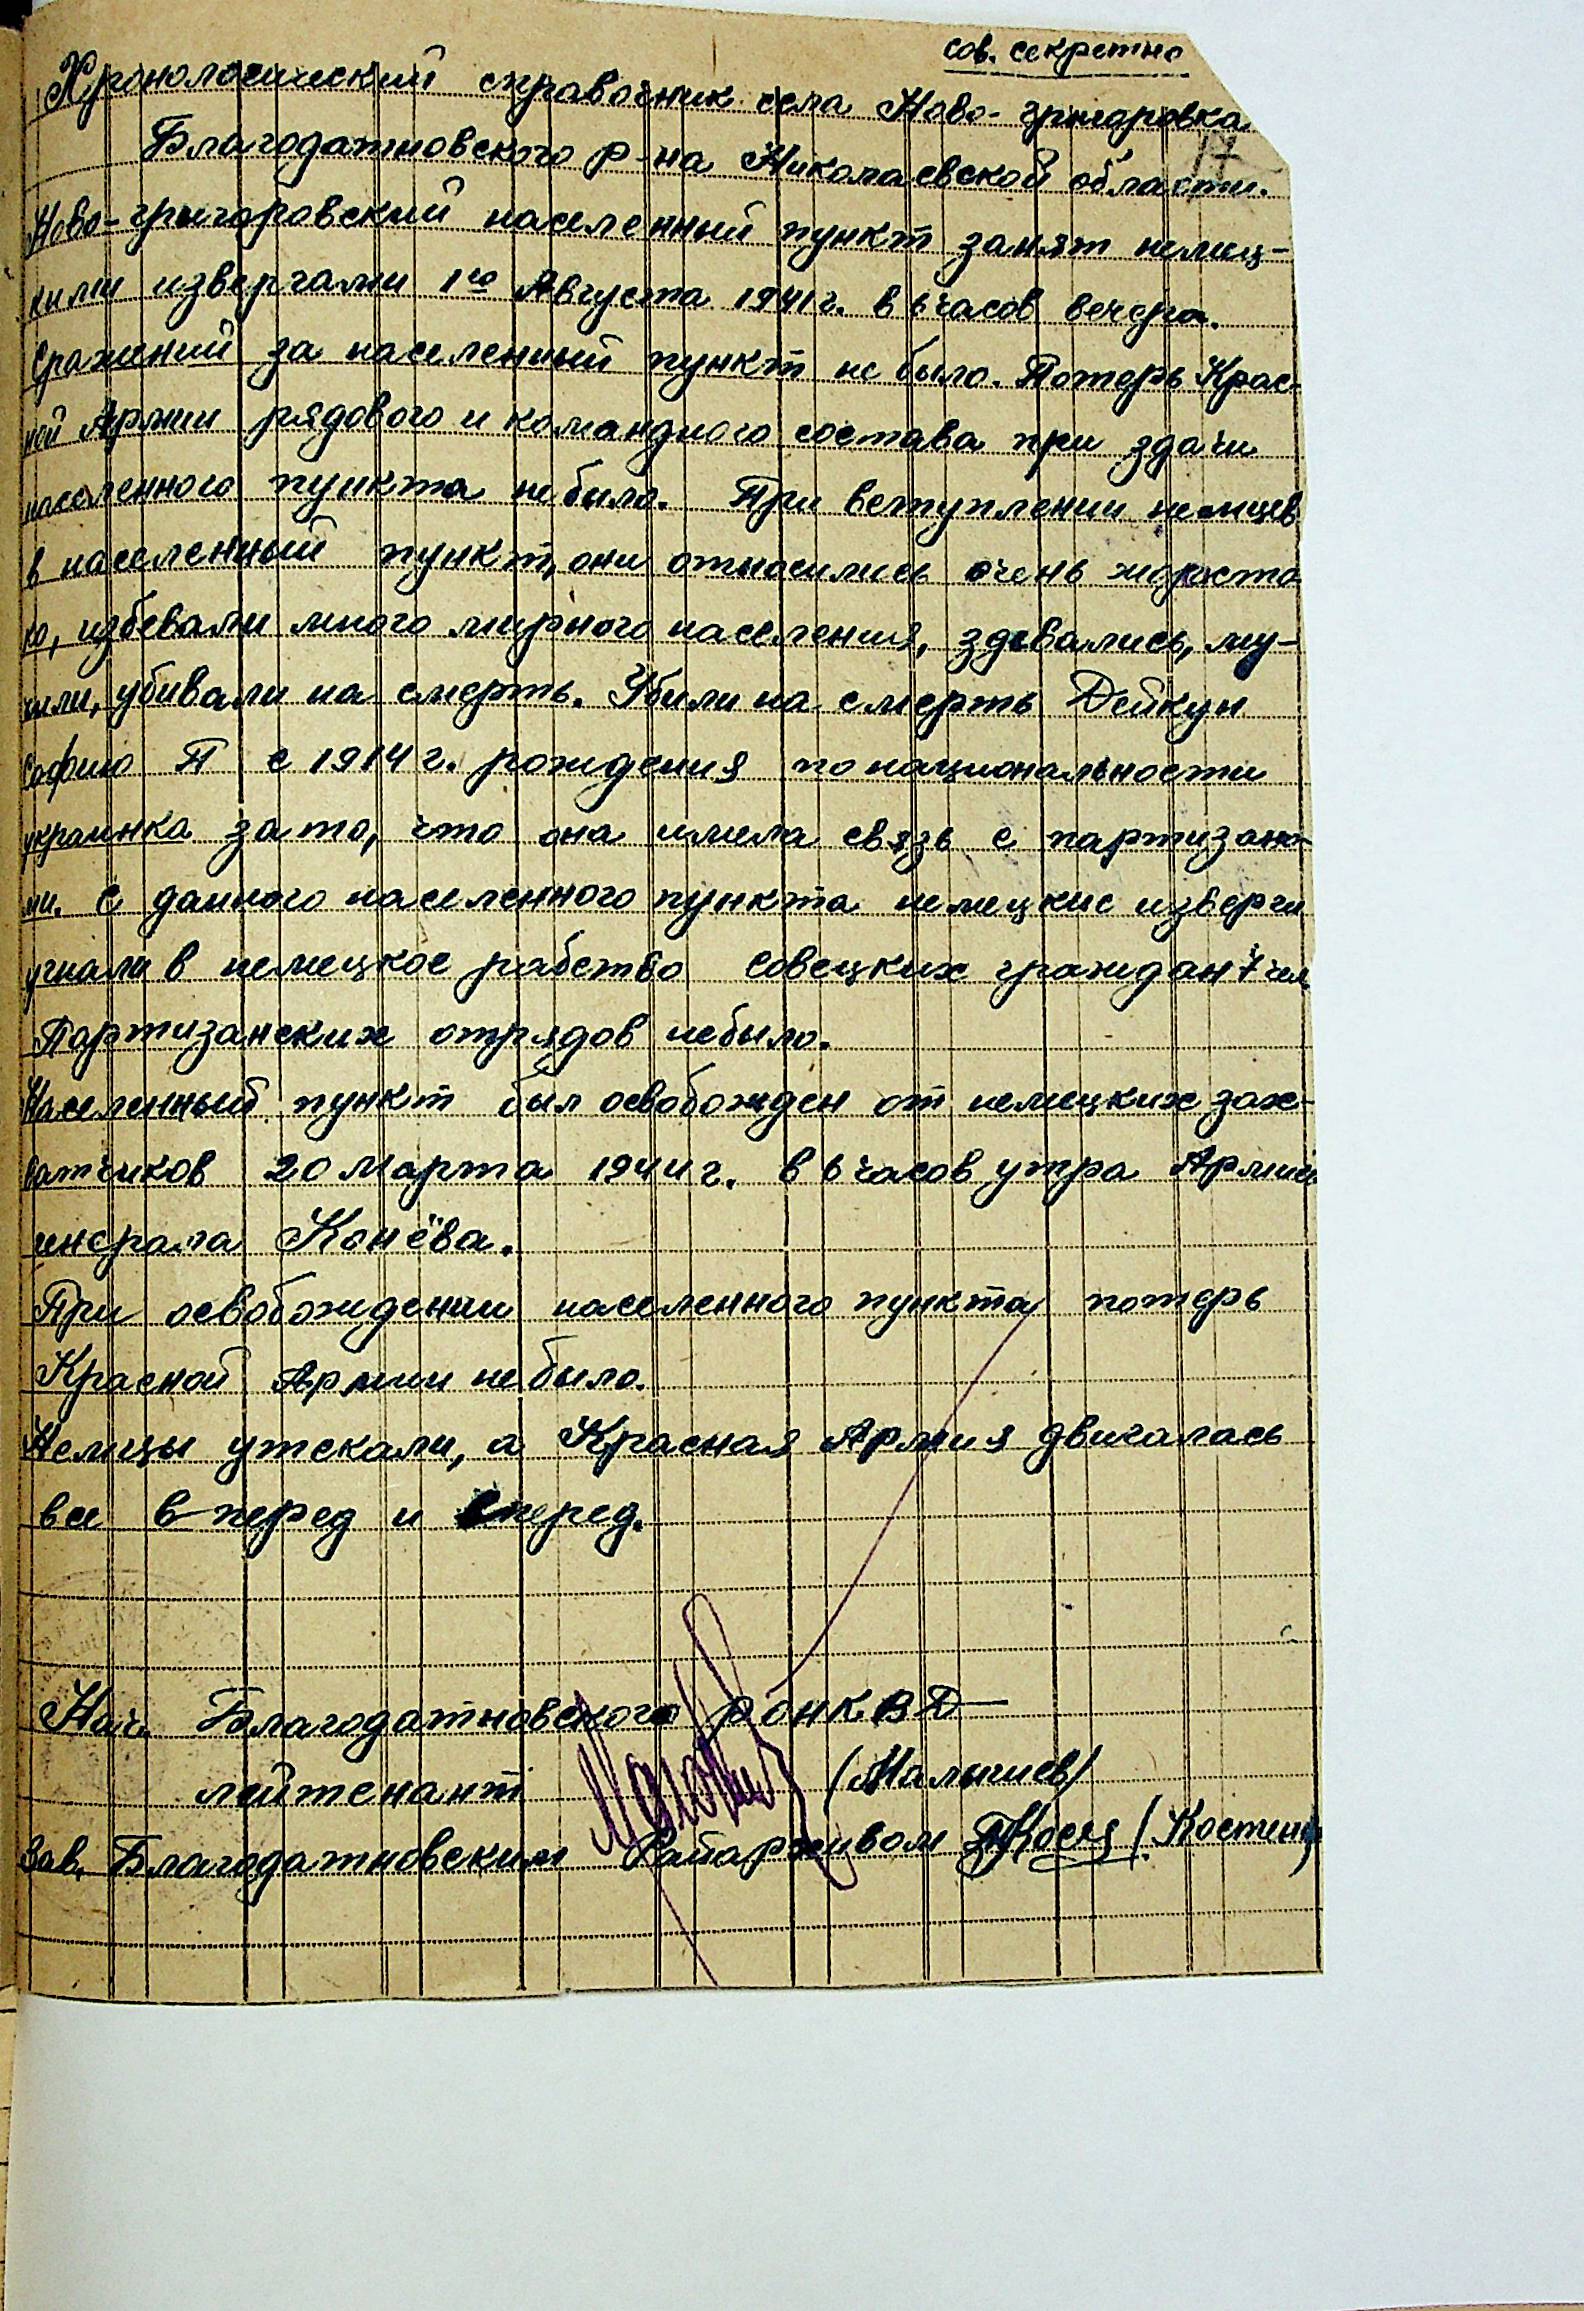 сов. секретно
Хронологический справочник села Ново-григоровка
17
Благодатновского р-на Николаевской области.
Ново-григоровский населенный пункт занят немец-
кими извергами 1го Августа 1941 г. в 6 часов вечера.
Сражений за населенный пункт не было. Потерь Крас-
ной Армии рядового и командного состава при здачи
населенного пункта небыло. При вступлении немцев
в населенный пункт, они относились очень жосто
ко, избевали много мирного населения, здевались, му-
чили, убивали на смерть. Убили на смерть Дейкун
Софию П с 1914 г. рождения по национальности
украинка за то, что она имела связь с партизана-
ми. С данного населенного пункта немецкие изверги
угнали в немецкое рабство совецких граждан 7 чел.
Партизанских отрядов небыло.
Населенный пункт был освобожден от немецких зах-
ватчиков 20 Марта 1944 г. в 6 часов утра Армией
генерала Конёва.
При освобождении населенного пункта потерь
Красной Армии небыло.
Немцы утекали, а Красная Армия двигалась
все в перед и вперед.
Нач. Благодатновского РОНКВД
лейтенант (Малышев)
Зав. Благодатновским Райархивом /Костен